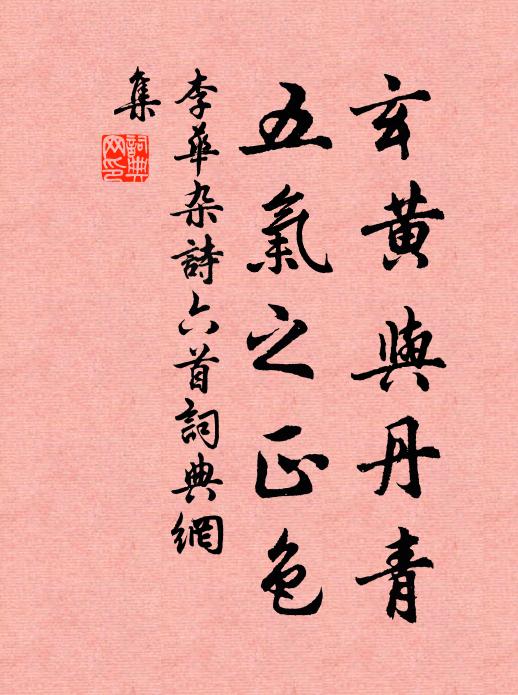 玄黄與丹青
五氣之正色
李華杂詩六首詞典網
集
詞典
网印